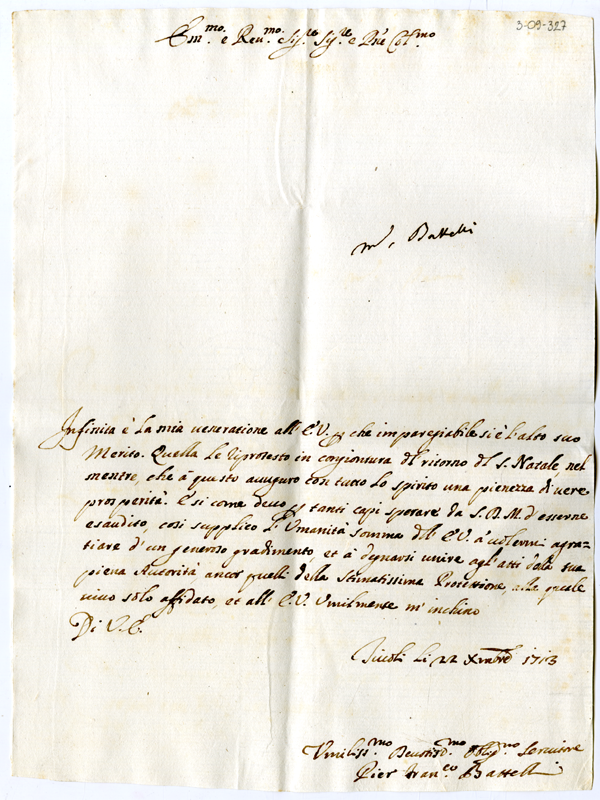 3-09-327
Em.mo e Reu.mo Sig.re Sig.re e Prōe Col.mo
m.r Battelli
Infinita è la mia ueneratione all' E.V. che impareggiabile si è l'alto suo
Merito. Quella le riprotesto in congiontura del ritorno del S. Natale nel
mentre, che à questo auuguro con tutto lo spirito una pienezza di uere
prosperità. E si come deuo tanti capi sperare da S.D.M. d'esserne
esaudito, così supplico l'Umanità somma dell' E.V. à uolermi agra=
tiare d'un generoso gradimento, et à degnarsi unire agl'atti della sua
piena Autorità ancor quelli della Stimatissima Protettione, alla quale
uiuo solo affidato, et all' E.V. Vmilmente m'inchino
Di V.E.
Tiuoli li 22 Xmbre 1713
Vmiliss.mo Deuotiss.mo Oblig.mo Seruitore
Pier Fran.co Battelli